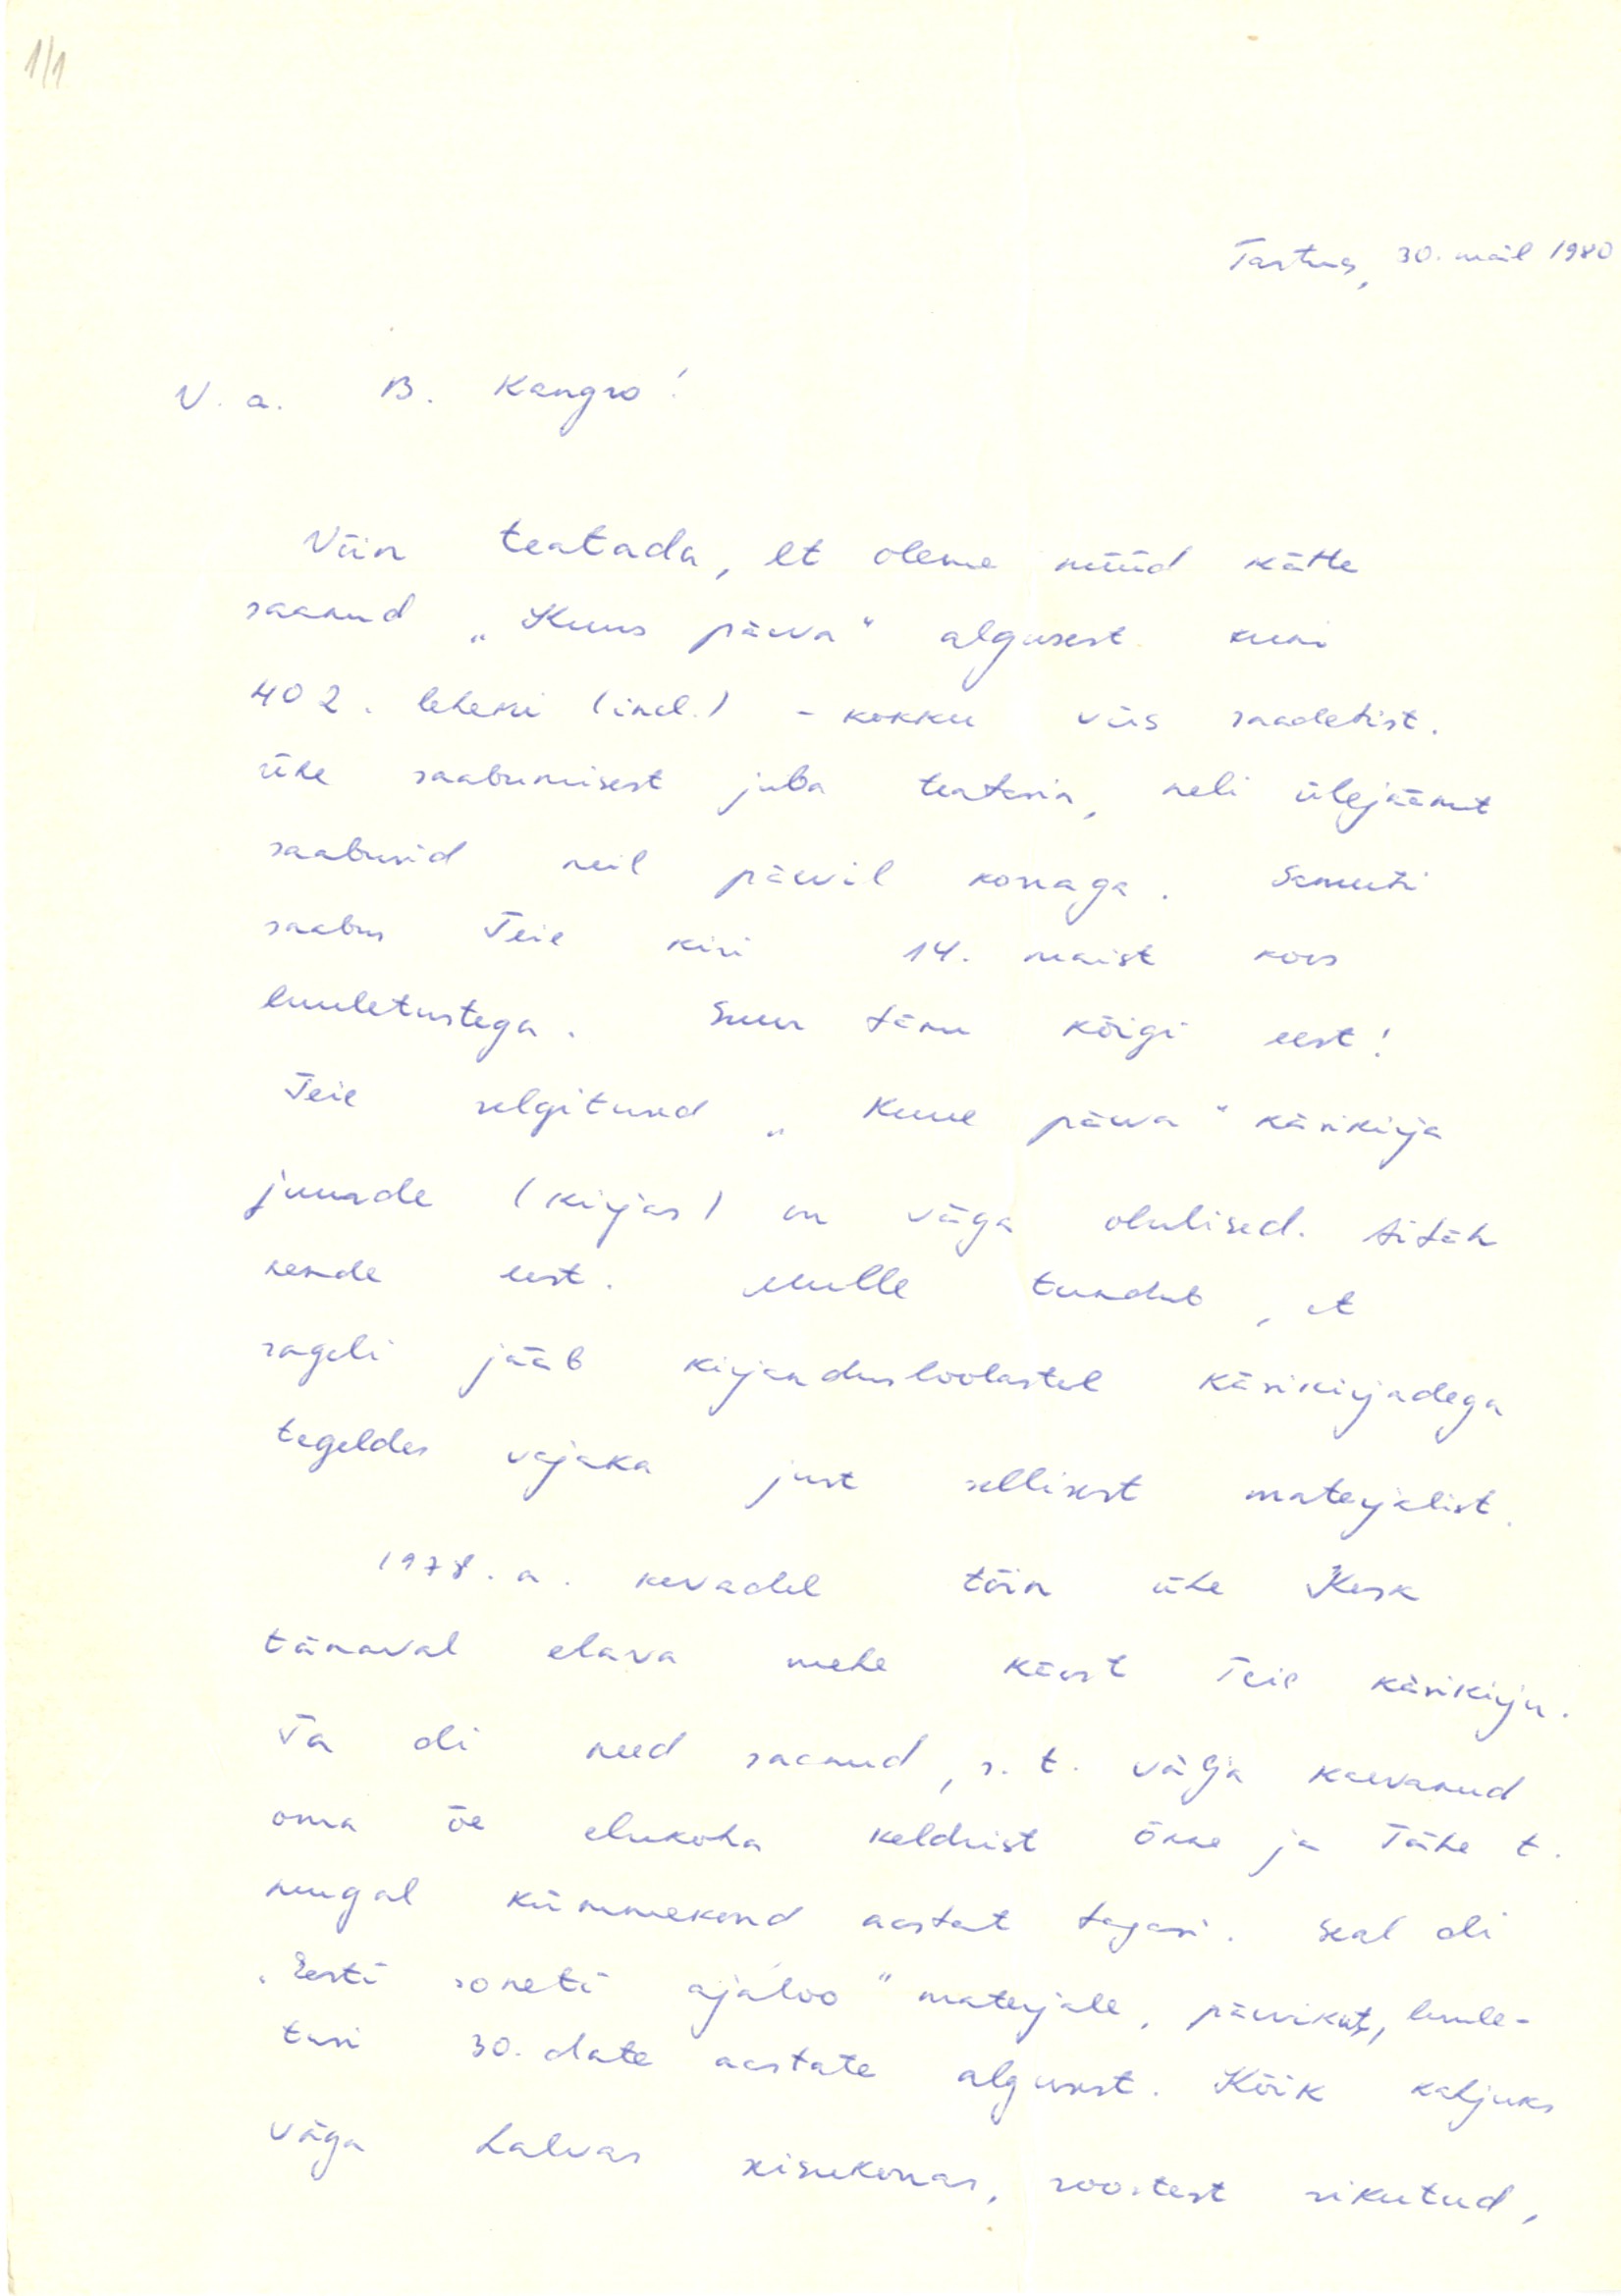 1/1
Tartus, 30. mail 1980
V. a. B. Kangro!
Võin teatada, et oleme nüüd kätte
saanud „Kuus päeva" algusest kuni
402. leheni (incl.) - kokku viis saadetist.
Ühe saabumisest juba teatasin, neli ülejäänut
saabusid neil päevil korraga. Samuti
saabus Teie kiri 14. maist koos
luuletustega. Suur tänu kõigi eest!
Teie selgitused „Kuue päeva" käsikirja
juurde (kirjas) on väga olulised. Aitäh
nende eest. Mulle tundub, et
sageli jääb kirjandusloolastel käsikirjadega
tegeldes vajaka just sellisest materjalist.
1978. a. kevadel tõin ühe Kesk
tänaval elava mehe käest Teie käsikirju.
Ta oli need saanud, s. t. välja kaevanud
oma õe elukoha keldrist Õnne ja Tähe t.
nurgal kümmekond aastat tagasi. Seal oli
„Eesti soneti ajaloo" materjale, päevikut, luule-
tusi 30. date aastate algusest. Kõik kahjuks
väga halvas seisukorras, roostest rikutud,